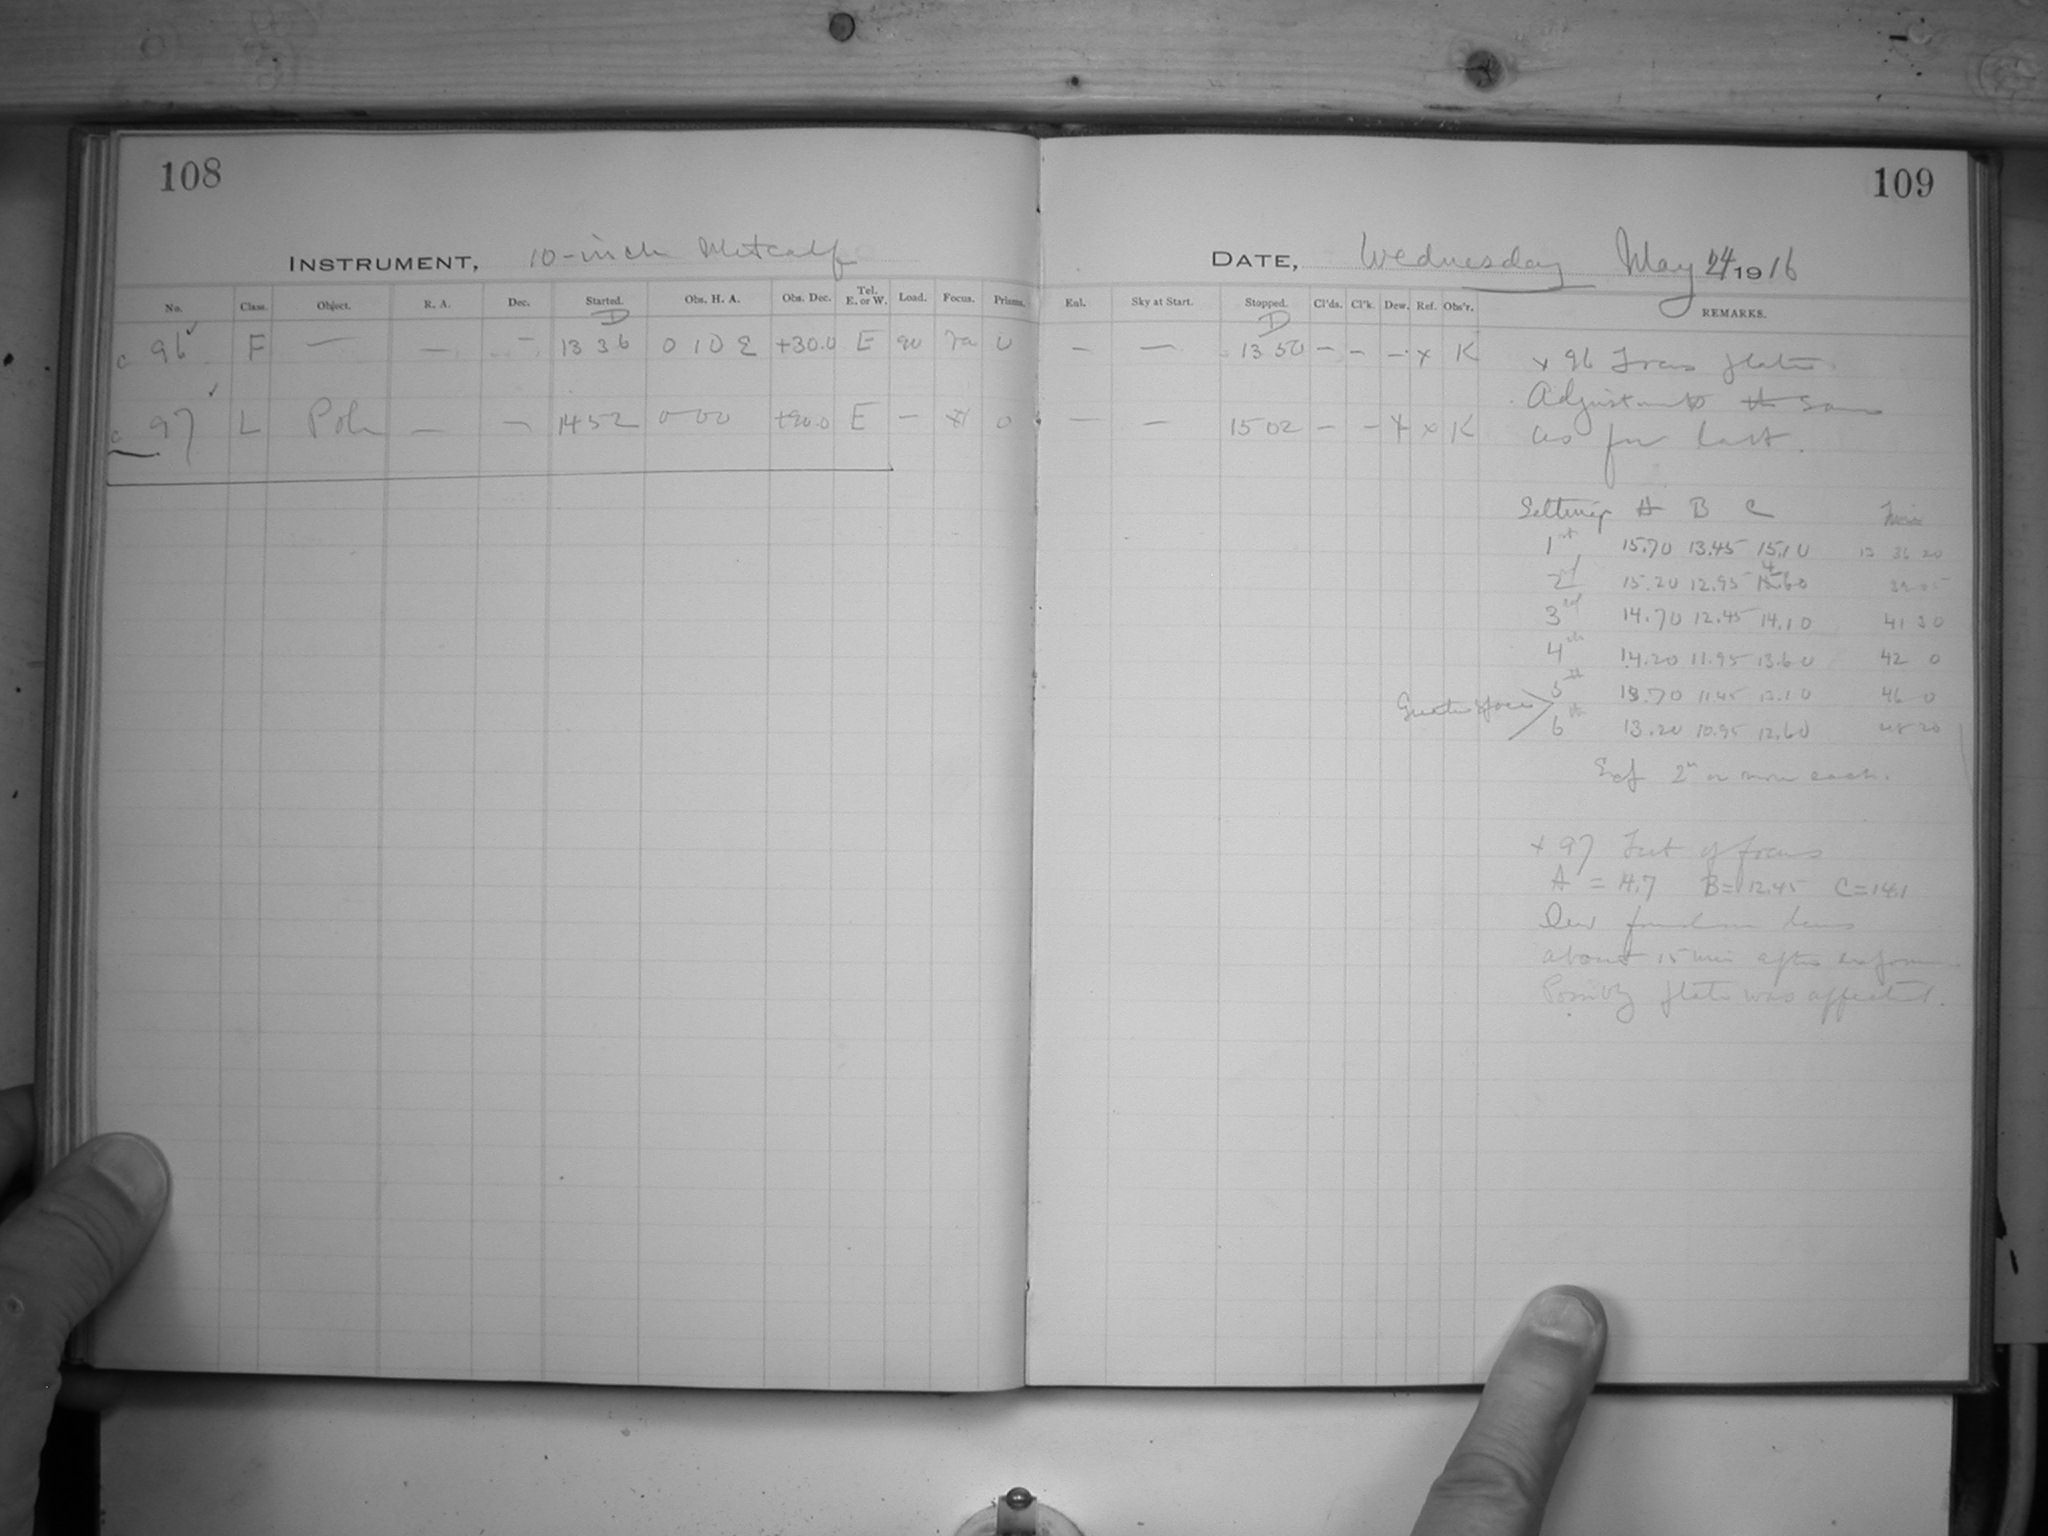 108
109
INSTRUMENT, 10-inch Metcalf
DATE, Wednesday May 24 1916
No. Class. Object. R. A. Dec. Started. Obs. H. A. Obs. Dec. Tel. E. or W. Load. Focus. Prisms. Enl. Sky at Start. Stopped. Cl'ds. Cl'k. Dew. Ref. Obs'r. REMARKS.
D D
c 96 ✓ F — — — 13 36 0 10 E +30.0 E va 0 — — 13 50 — — — x K
c 97 ✓ L Pole — — 14 52 0 00 +90.0 E — x 0 — — 15 02 — — x x K
x 96 Focus plate.
Adjustments same
as for last.
Setting A B C Time
1st 15.70 13.45 15.10 13 36 20
2d 15.20 12.95 14.60
3rd 14.70 12.45 14.10 41 30
4th 14.20 11.95 13.60 42 0
5th 13.70 11.45 13.10 46 0
6th 13.20 10.95 12.60 48 20
Exp 2m or more each.
x 97 Test of focus
A = 14.7 B = 12.45 C = 14.1
Dew found on lens
about 15 min after exposure
Possibly plate was affected.